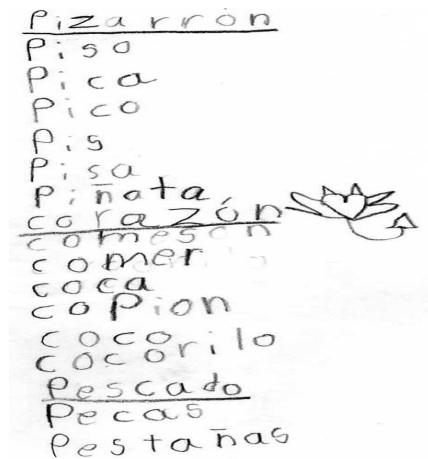 Pizarrón
Piso
Pica
Pico
Pis
Pisa
Piñata
corazón
comeson
comer
coca
copion
coco
cocorilo
Pescado
Pecas
Pestañas